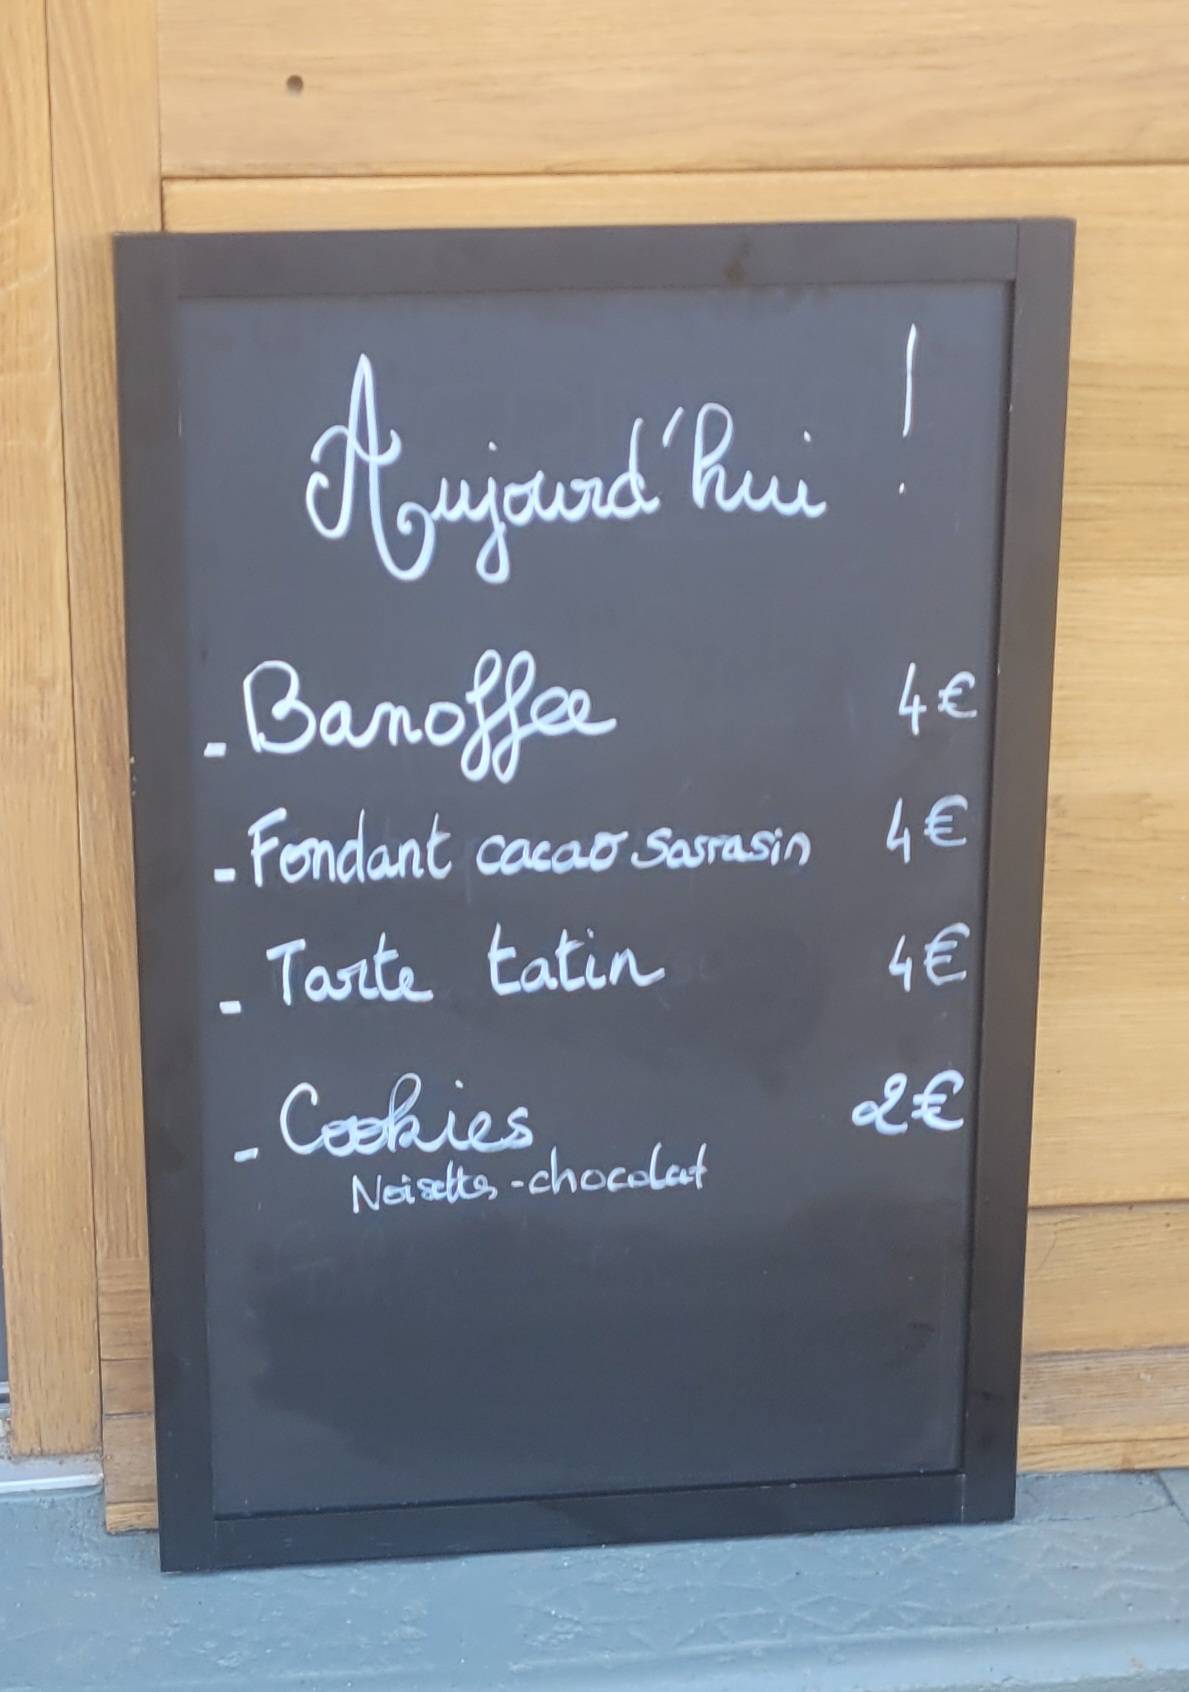 Aujourd'hui !
- Banoffee 4€
- Fondant cacao sarrasin 4€
- Tarte tatin 4€
- Cookies 2€
Noisettes - chocolat